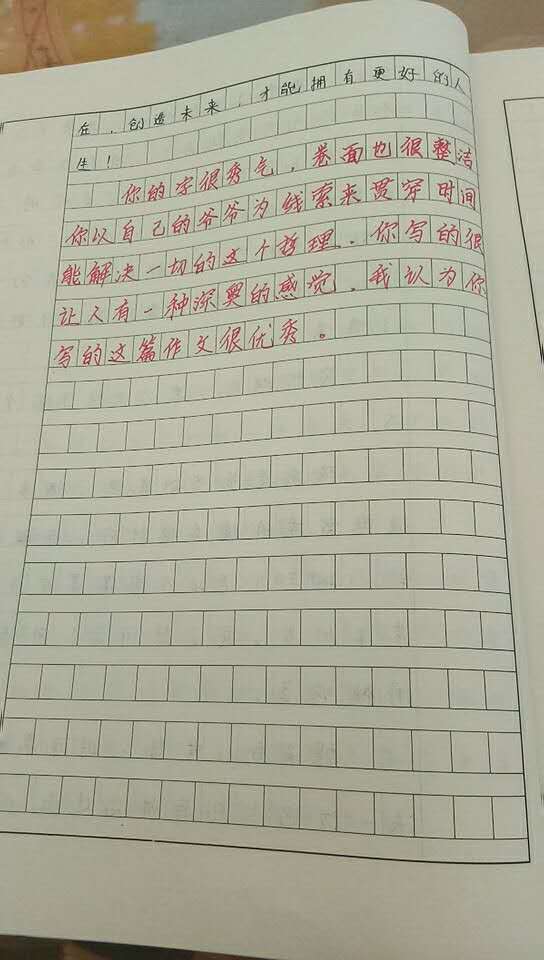 在，创造未来，才能拥有更好的人
生！
你的字很秀气，卷面也很整洁
你以自己的爷爷为线索来贯穿时间
能解决一切的这个哲理．你写的很
让人有一种深奥的感觉．我认为你
写的这篇作文很优秀。